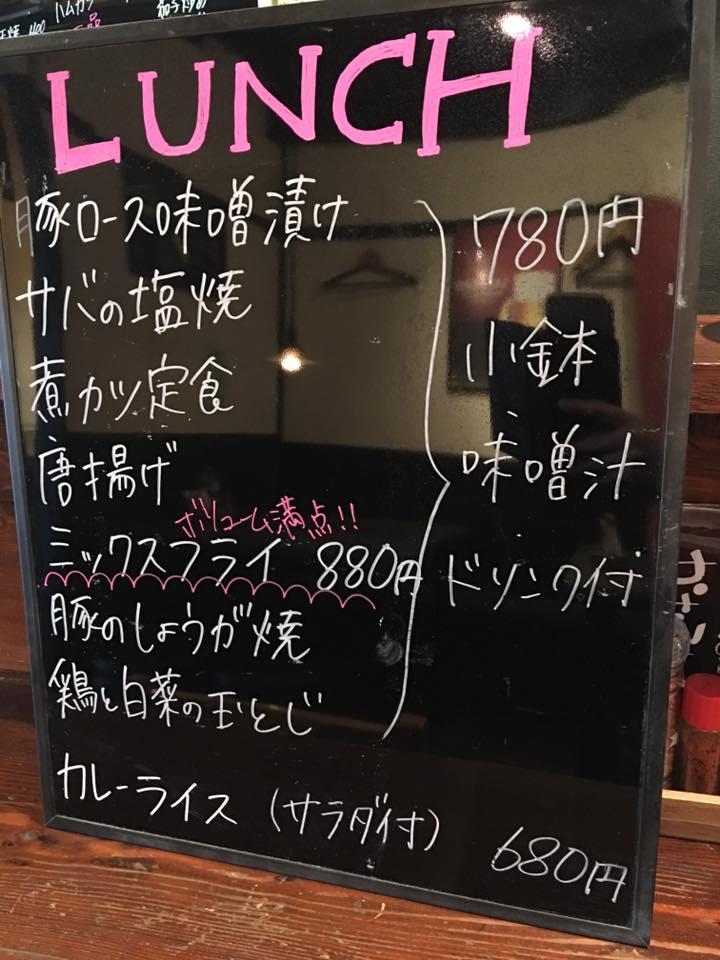 ハムカツ
LUNCH
豚ロース味噌漬け
サバの塩焼
煮カツ定食
唐揚げ
ボリューム満点!!
ミックスフライ 880円
豚のしょうが焼
鶏と白菜の玉とじ
780円
小鉢
味噌汁
ドリンク付
カレーライス (サラダ付) 680円